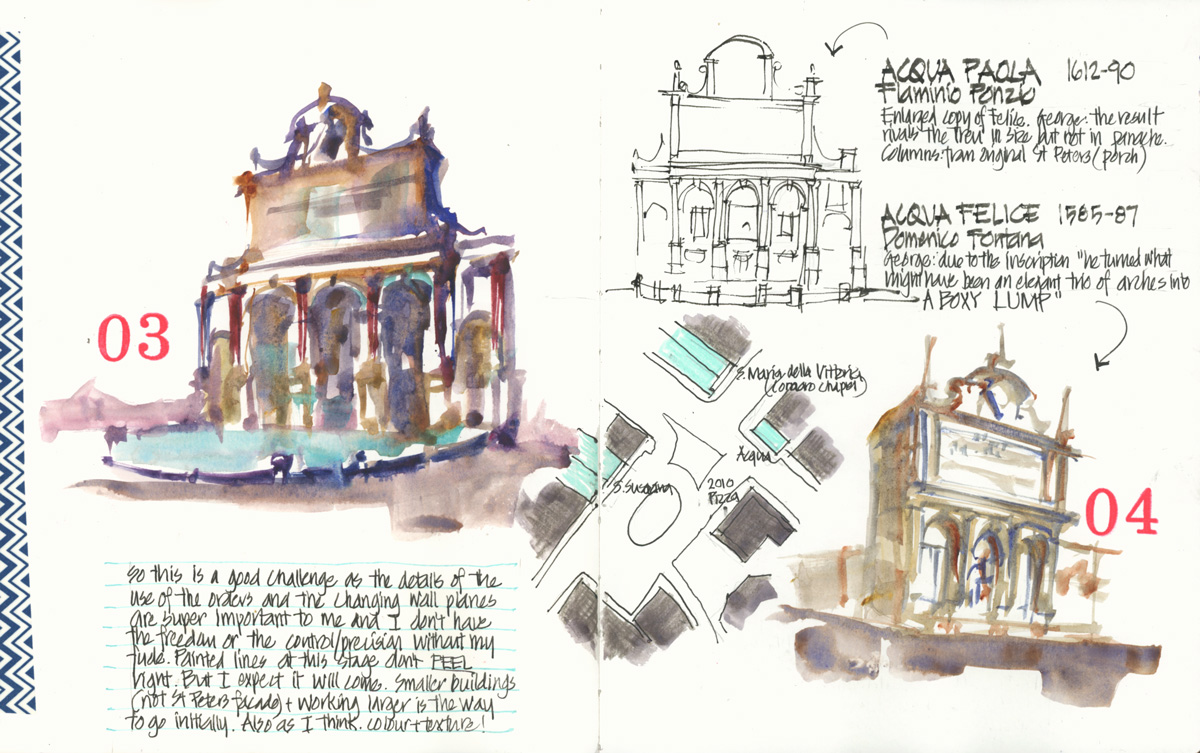 03
So this is a good challenge as the details of the
use of the orders and the changing wall planes
are super important to me and I don't have
the freedom or the control/precision without my
. Painted lines at this stage dont FEEL
right. But I expect it will come. Smaller buildings
(not St Peters facade) + working larger is the way
to go initially. Also as I think. colour+texture!
ACQUA PAOLA 1612-90
Flaminio Ponzio
Enlarged copy of Felice. George: the result
rivals the Trevi in size but not in panache.
Columns: from original St Peters (porch)
ACQUA FELICE 1585-87
Domenico Fontana
George: due to the inscription "he turned what
might have been an elegant trio of arches into
A BOXY LUMP"
S. Maria della Vittoria
(Cornaro Chapel)
Acqua
S. Susanna
2010
Pizza
04